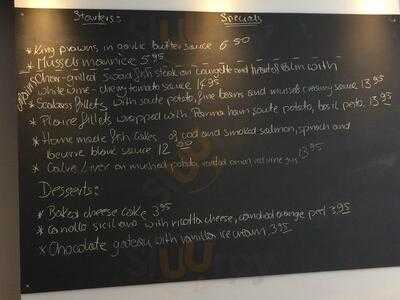 Starters: Specials
* King prawns in garlic butter sauce 6.50
* Mussels mariniere 5.95
* Char-grilled swordfish steak on courgette and with
white wine - cherry tomato sauce 14.95
* Seabass fillets with saute potato, fine beans and mussels creamy sauce 13.95
* Plaice fillets wrapped with Parma ham saute potato, basil pesto 13.95
* Home made fish cakes of cod and smoked salmon, spinach and
beurre blanc sauce 12.00
* Calve Liver on mushed potato, roasted onion red wine 13.95
Desserts:
* Baked cheese cake 3.95
* Canolla siciliana with ricotta cheese, candied orange peel 3.95
* Chocolate gateau with vanilla ice cream, 3.95